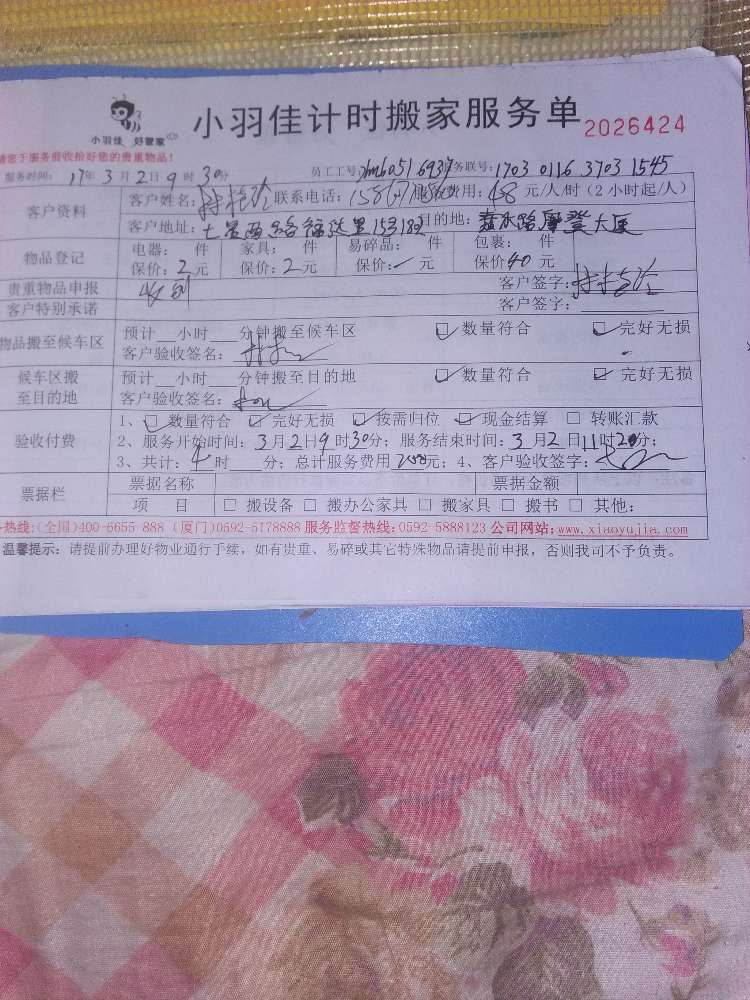 小羽佳 好管家
小羽佳计时搬家服务单 2026424
请您于服务前收拾好您的贵重物品!
服务时间: 17年3月2日9时30分 员工工号: 务联号: 1703 0116 3703 1545
客户资料 客户姓名: 联系电话: 费用: 元/人/时 (2小时起/人)
客户地址: 目的地: 大厦
物品登记 电器: 件 家具: 件 易碎品: 件 包裹: 件
保价: 2元 保价: 2元 保价: 元 保价40元
贵重物品申报 客户签字:
客户特别承诺 客户签字:
物品搬至候车区 预计__小时__分钟搬至候车区 ☑数量符合 ☑完好无损
客户验收签名:
候车区搬至目的地 预计__小时__分钟搬至目的地 ☑数量符合 ☑完好无损
客户验收签名:
验收付费 1、☑数量符合 ☑完好无损 ☑按需归位 ☑现金结算 □转账汇款
2、服务开始时间: 3月2日9时30分; 服务结束时间: 3月2日11时20分;
3、共计: 4时__分; 总计服务费用 元; 4、客户验收签字:
票据栏 票据名称 票据金额
项 目 □搬设备 □搬办公家具 □搬家具 □搬书 □其他:
热线:(全国)400-6655 888 (厦门)0592-5178888 服务监督热线:0592-5888123 公司网站:www.xiaoyujia.com
温馨提示: 请提前办理好物业通行手续,如有贵重、易碎或其它特殊物品请提前申报,否则我司不予负责。